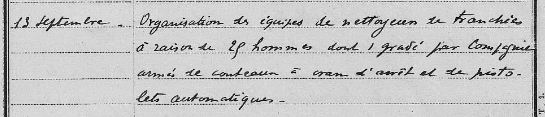 13 Septembre - Organisation des équipes de nettoyeurs de tranchées
à raison de 25 hommes dont 1 gradé par Compagnie
armés de couteaux à cran d'arrêt et de pisto-
lets automatiques -